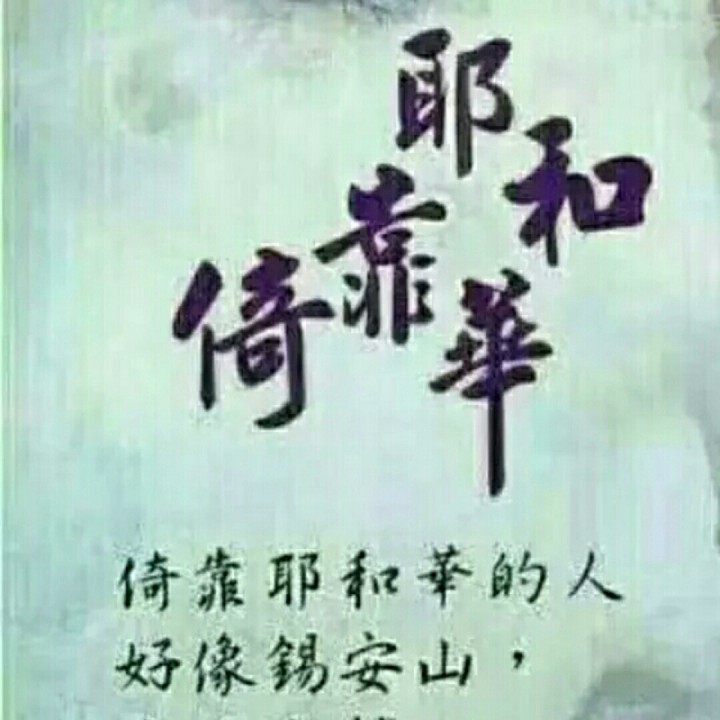 倚靠
耶和華
倚靠耶和華的人
好像錫安山，